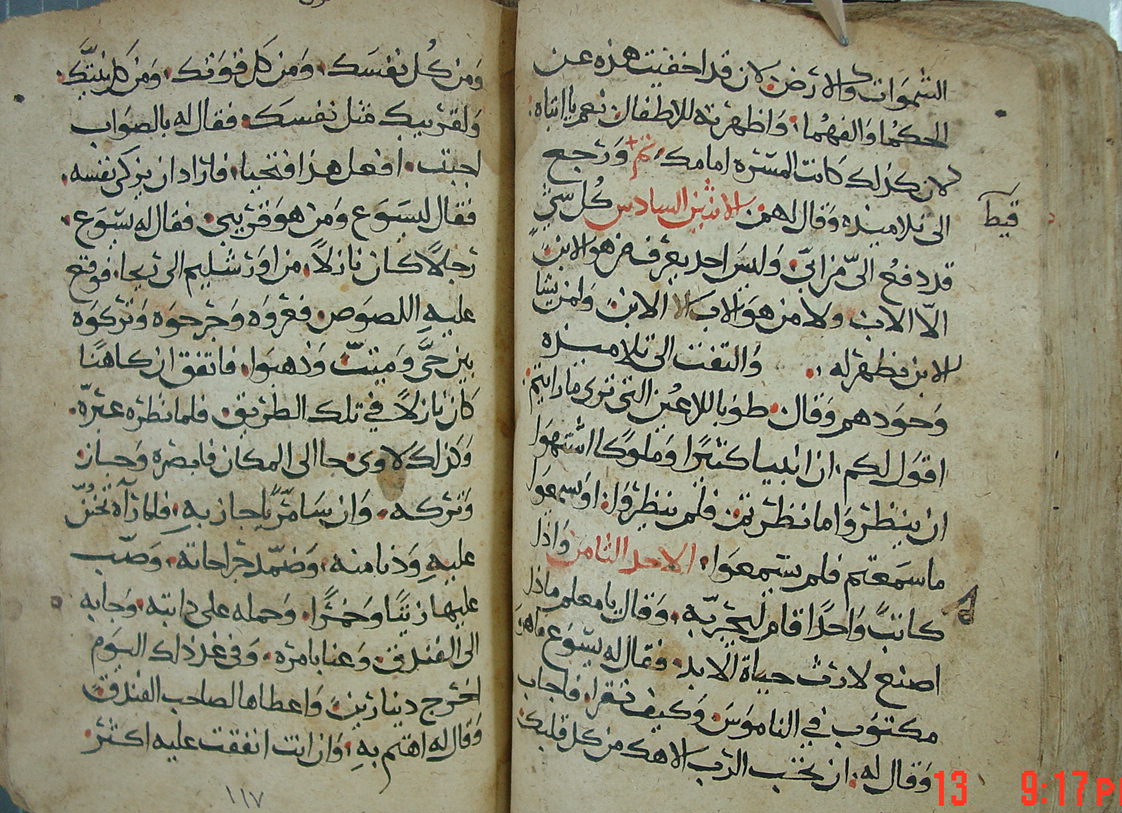 السموات والارض لان قد اخفيت هذه عن
الحكما والفهما، واظهرته للاطفال نعم يا ابتاه
لان كذلك كانت المسره امامك، تم ورجع
الى تلاميذه وقال لهم، الاثنين السادس كل شي
قيط
قد دفع الىّ من ابي، وليس احد يعرف من هو الابن
الّا الاب ولا من هو الاب الا الابن، ولمن يشا
الابن يظهر له، والتفت الى تلاميذه
وحودهم وقال طوبا للاعين التي ترى ما رايتم
اقول لكم ان انبيا كثيرًا وملوكا اشتهوا
ان ينظروا ما نظرتم فلم ينظروا، او يسمعوا
ما سمعتم فلم يستمعوا، الاحد الثامن واذا
كاتبًا واحدًا قام ليجرّبه، وقال يا معلم ماذا
اصنع لارث حياة الابد، فقال له يسوع ما هو
مكتوب في الناموس، وكيف تقرا، فاجاب
وقال له، ان تحب الرب الاهك من كل قلبك
ومن كل نفسك، ومن كل قوتك، ومن كل نيتك
ولقريبك مثل نفسك، فقال له بالصواب
اجبت، افعل هذا فتحيا، فاراد ان يزكى نفسه،
فقال ليسوع ومن هو قريبي، فقال له يسوع،
رجلًا كان نازلًا، من اورشليم الى ريحا، فوقع
عليه اللصوص، فعروه وجرحوه وتركوه
بين حيّ وميّت وذهبوا، فاتفق ان كاهنًا
كان نازلًا في تلك الطريق، فلما نظره عبره،
وكذلك لاوى جا الى المكان فابصره وجاز
وتركه، وان سامريًا جاز به، فلما رآه تحنّن
عليه ودنا منه، وضمّد جراحاته، وصب
عليها زيتًا وخمرًا، وحمله على دابته، وجا به
الى الفندق، وعنا بامره، وفي غد ذلك اليوم
اخرج دينارين، واعطاها لصاحب الفندق
وقال له اهتم به، وان انت انفقت عليه اكثر
١١٧
13 9:17 P